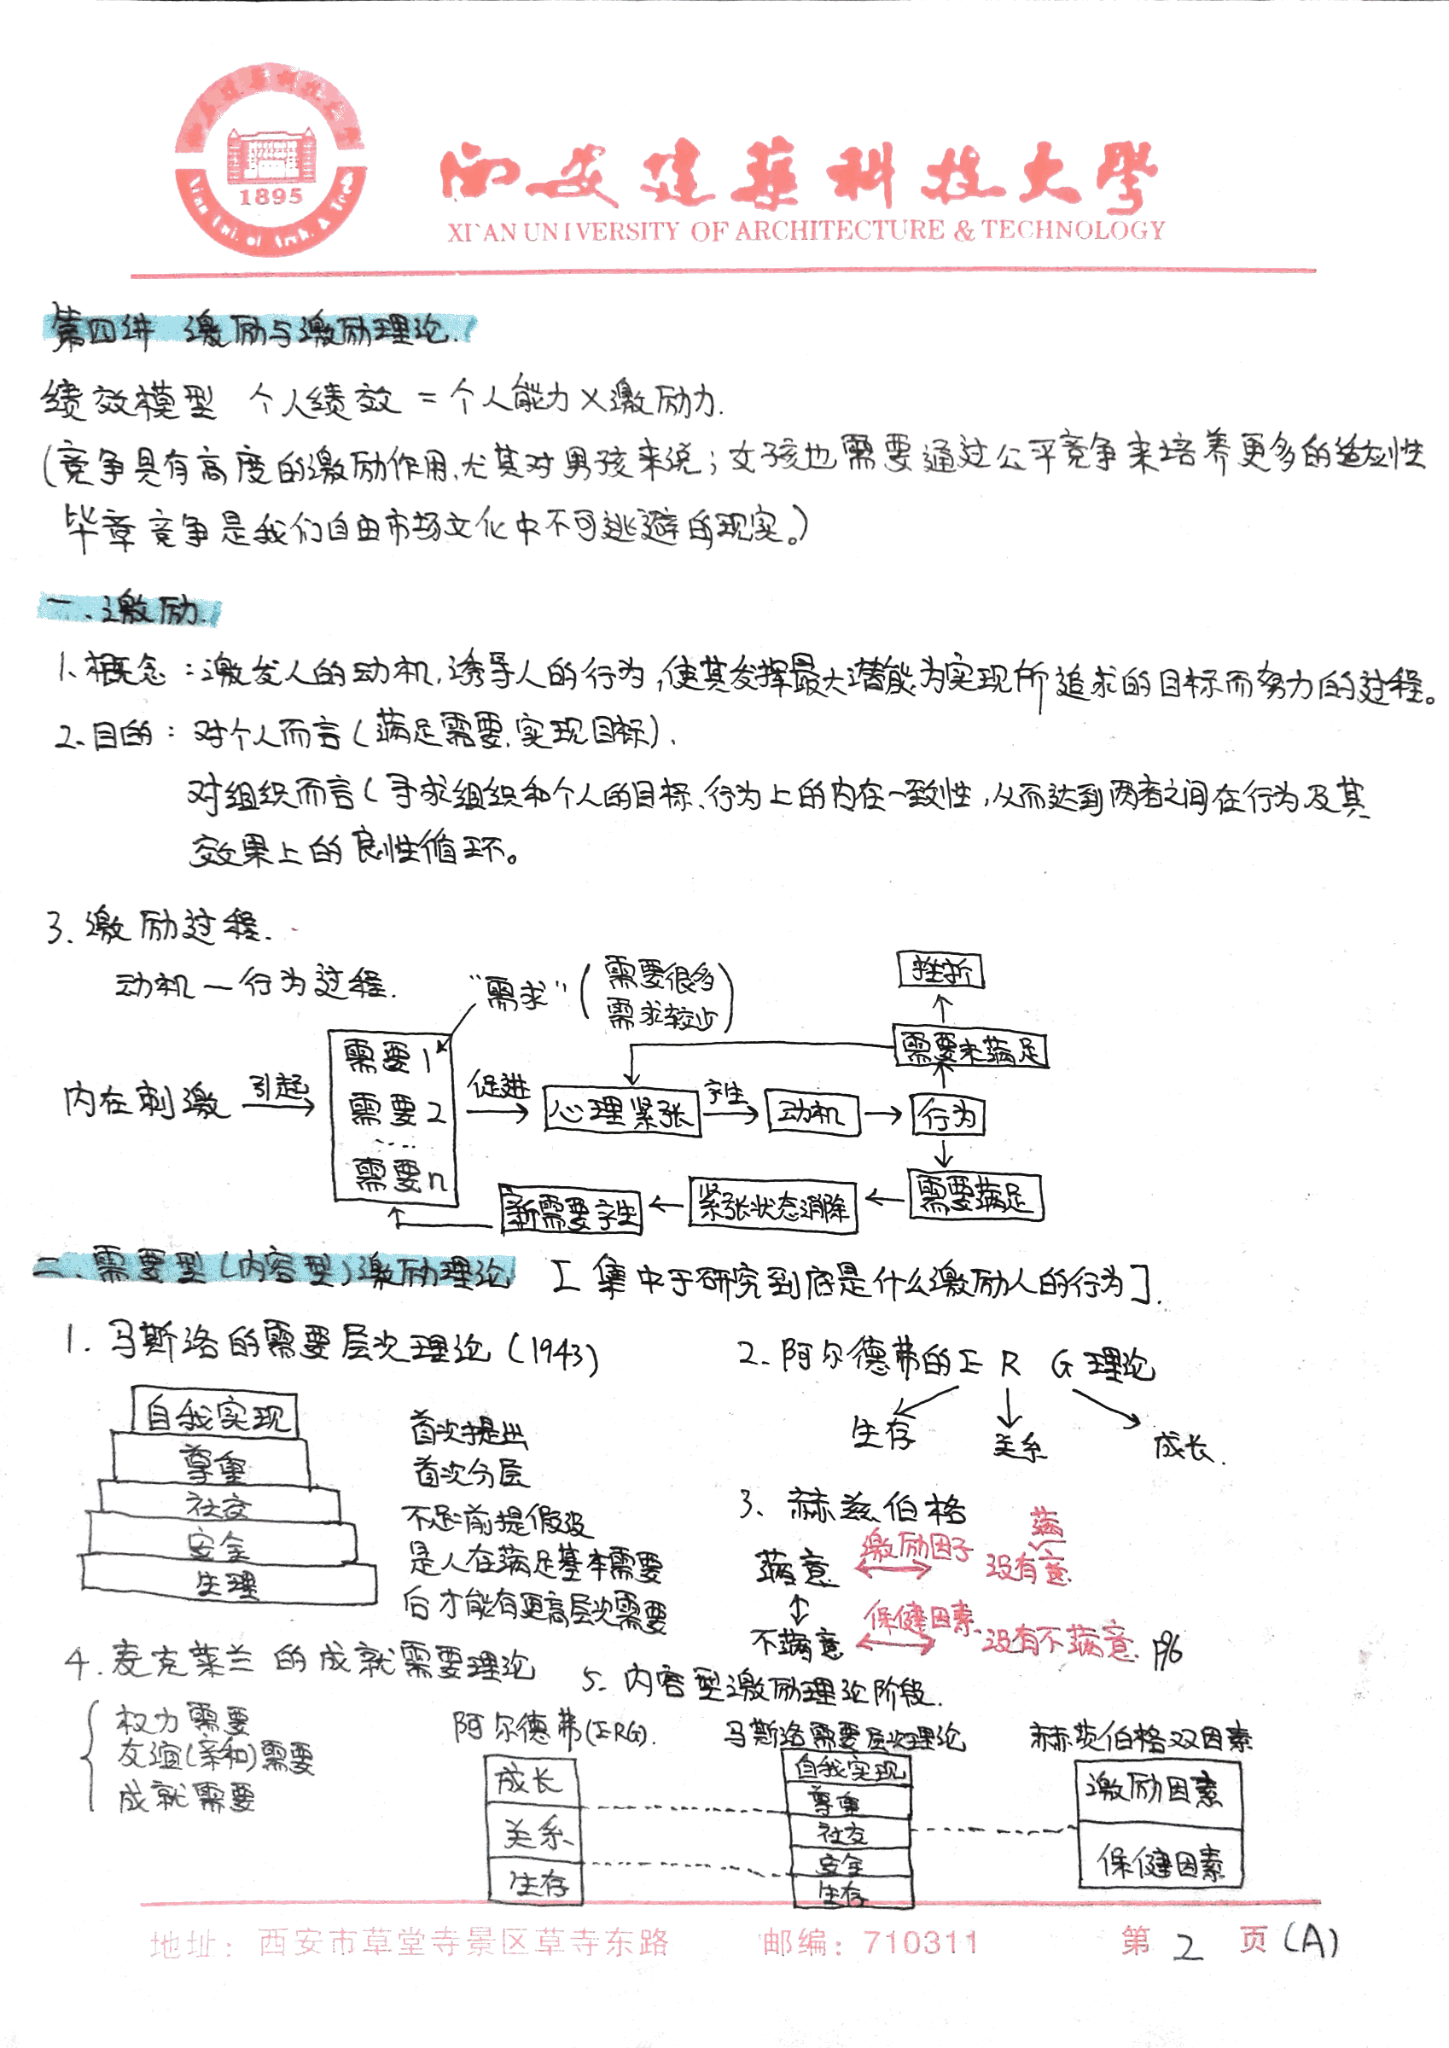 1895
西安建筑科技大学
XI'AN UNIVERSITY OF ARCHITECTURE & TECHNOLOGY
第四讲 激励与激励理论.
绩效模型 个人绩效 = 个人能力×激励力.
(竞争具有高度的激励作用,尤其对男孩来说;女孩也需要通过公平竞争来培养更多的适应性
毕章竞争是我们自由市场文化中不可逃避的现实。)
一.激励.
1.概念:激发人的动机,诱导人的行为,使其发挥最大潜能为实现所追求的目标而努力的过程。
2.目的:对个人而言(满足需要,实现目标).
对组织而言(寻求组织和个人的目标、行为上的内在一致性,从而达到两者之间在行为及其
效果上的良性循环。
3.激励过程.
动机—行为过程.
“需求”(需要很多
需求较少)
挫折
需要未满足
内在刺激 引起
需要1
需要2
....
需要n
促进
心理紧张
产生
动机
行为
新需要产生
紧张状态消除
需要满足
二.需要型(内容型)激励理论 [集中于研究到底是什么激励人的行为].
1.马斯洛的需要层次理论(1943)
自我实现
尊重
社交
安全
生理
首次提出
首次分层
不足:前提假设
是人在满足基本需要
后才能有更高层次需要
2.阿尔德弗的E R G理论
生存 关系 成长.
3、赫兹伯格
满意 激励因子 没有满意
不满意 保健因素 没有不满意 P96
4.麦克莱兰的成就需要理论
权力需要
友谊(亲和)需要
成就需要
5.内容型激励理论阶段.
阿尔德弗(ERG).
成长
关系
生存
马斯洛需要层次理论
自我实现
尊重
社交
安全
生存
赫茨伯格双因素
激励因素
保健因素
地址：西安市草堂寺景区草寺东路 邮编：710311 第 2 页(A)